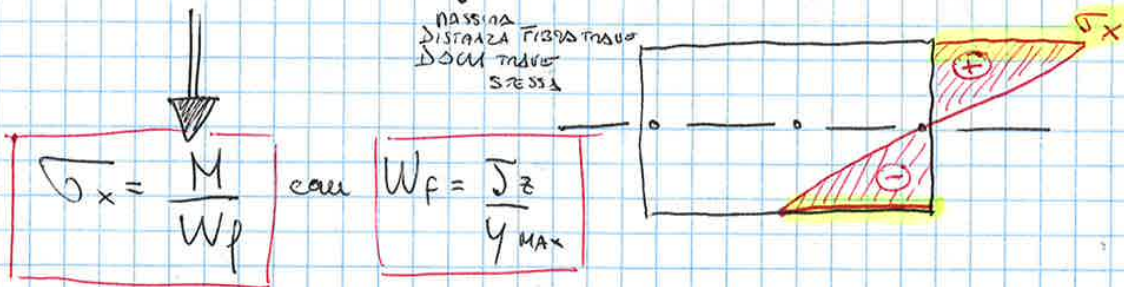 MASSIMA
DISTANZA FIBRA TRAVE
DALLA TRAVE
STESSA
σx
+
σx = M / Wf con Wf = Jz / y MAX
-